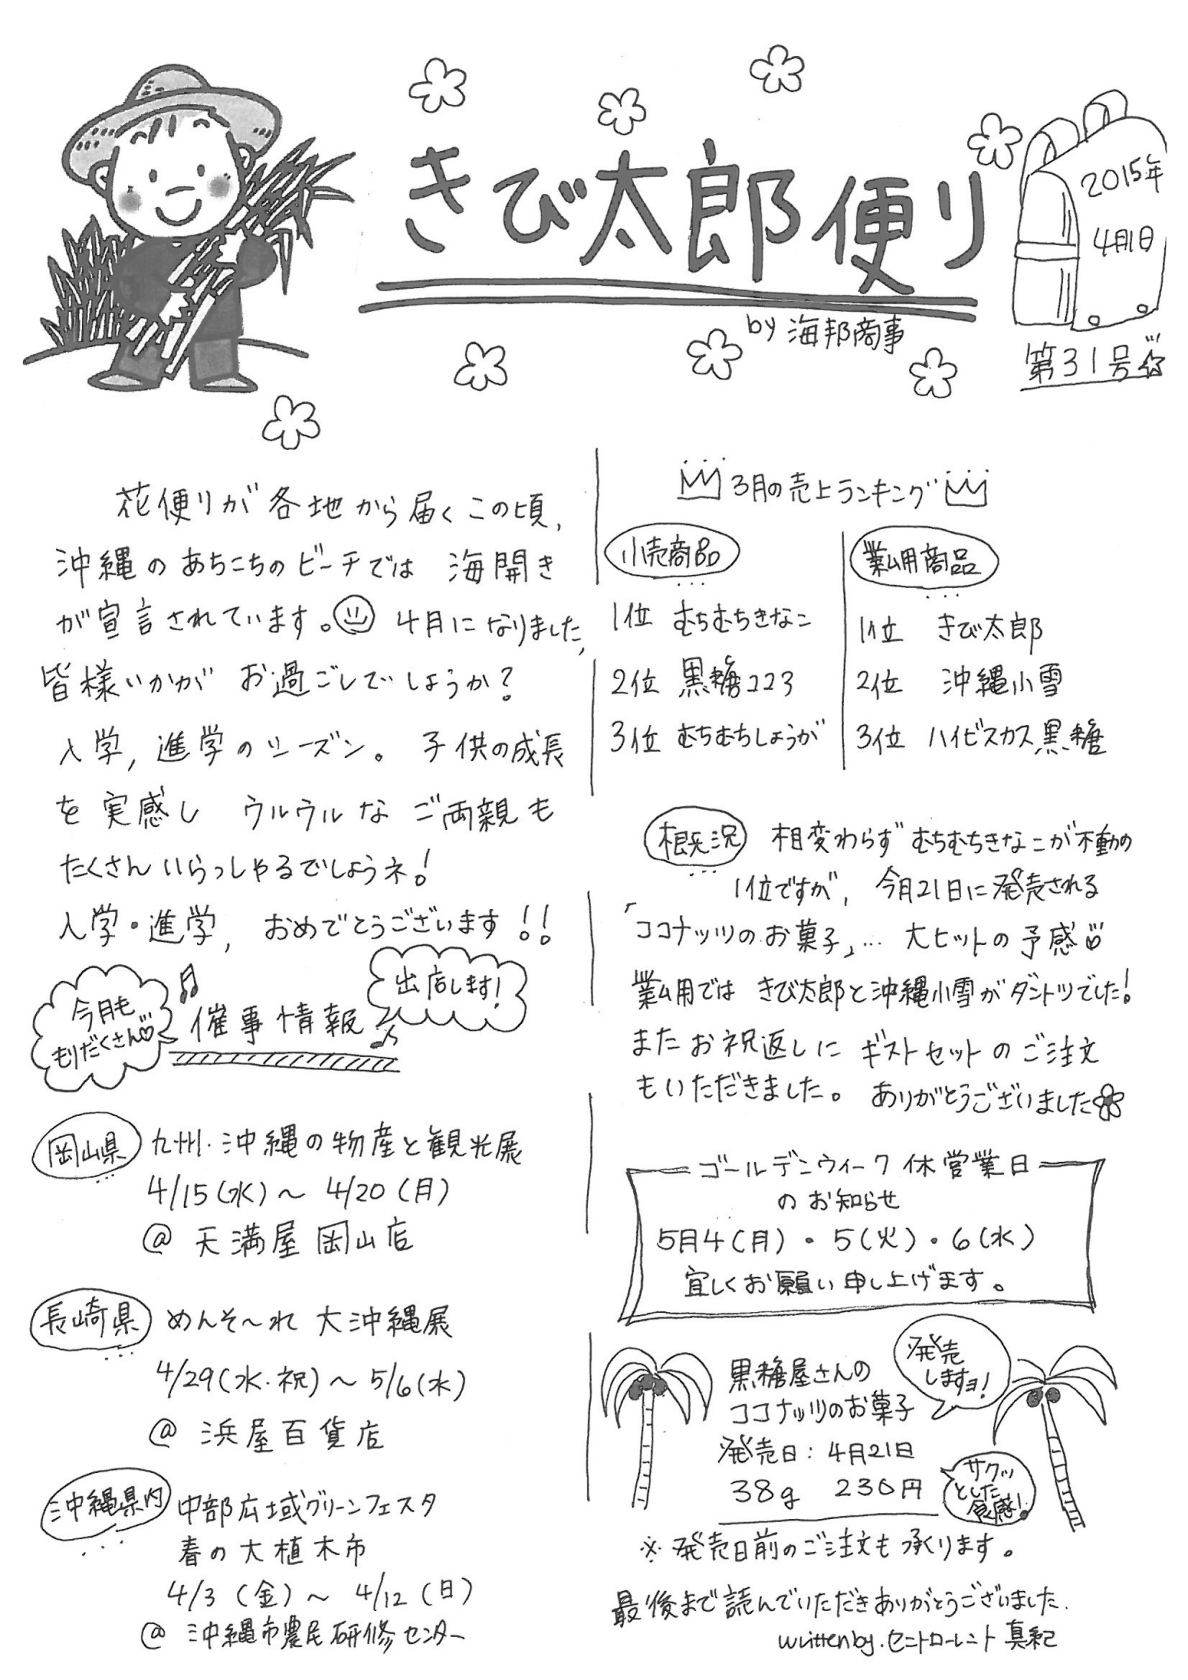 きび太郎便り
by 海邦商事
2015年
4月1日
第31号
花便りが各地から届くこの頃、
沖縄のあちこちのビーチでは 海開き
が宣言されています。 4月になりました、
皆様いかがお過ごしでしょうか?
入学,進学のシーズン。 子供の成長
を実感し ウルウルな ご両親も
たくさんいらっしゃるでしょうネ!
入学・進学, おめでとうございます!!
今月も
もりだくさん♡
催事情報
出店します!
岡山県 九州・沖縄の物産と観光展
4/15(水)~ 4/20(月)
@ 天満屋 岡山店
長崎県 めんそ~れ 大沖縄展
4/29(水・祝)~ 5/6(水)
@ 浜屋百貨店
沖縄県内 中部広域グリーンフェスタ
春の大植木市
4/3(金)~ 4/12(日)
@ 沖縄市農民研修センター
3月の売上ランキング
小売商品
1位 むちむちきなこ
2位 黒糖ココろ
3位 むちむちしょうが
業ム用商品
1位 きび太郎
2位 沖縄小雪
3位 ハイビスカス黒糖
概況 相変わらずむちむちきなこが不動の
1位ですが, 今月21日に発売される
「ココナッツのお菓子」… 大ヒットの予感
業ム用では きび太郎と沖縄小雪がダントツでした!
またお祝返しに ギフトセットのご注文
もいただきました。 ありがとうございました
ゴールデンウィーク休営業日
のお知らせ
5月4(月)・5(火)・6(水)
宜しくお願い申し上げます。
黒糖屋さんの
ココナッツのお菓子
発売日:4月21日
38g 230円
発売
しますョ!
サクッ
とした
食感!
※発売日前のご注文も承ります。
最後まで読んでいただきありがとうございました.
written by.セニトローレント 真紀